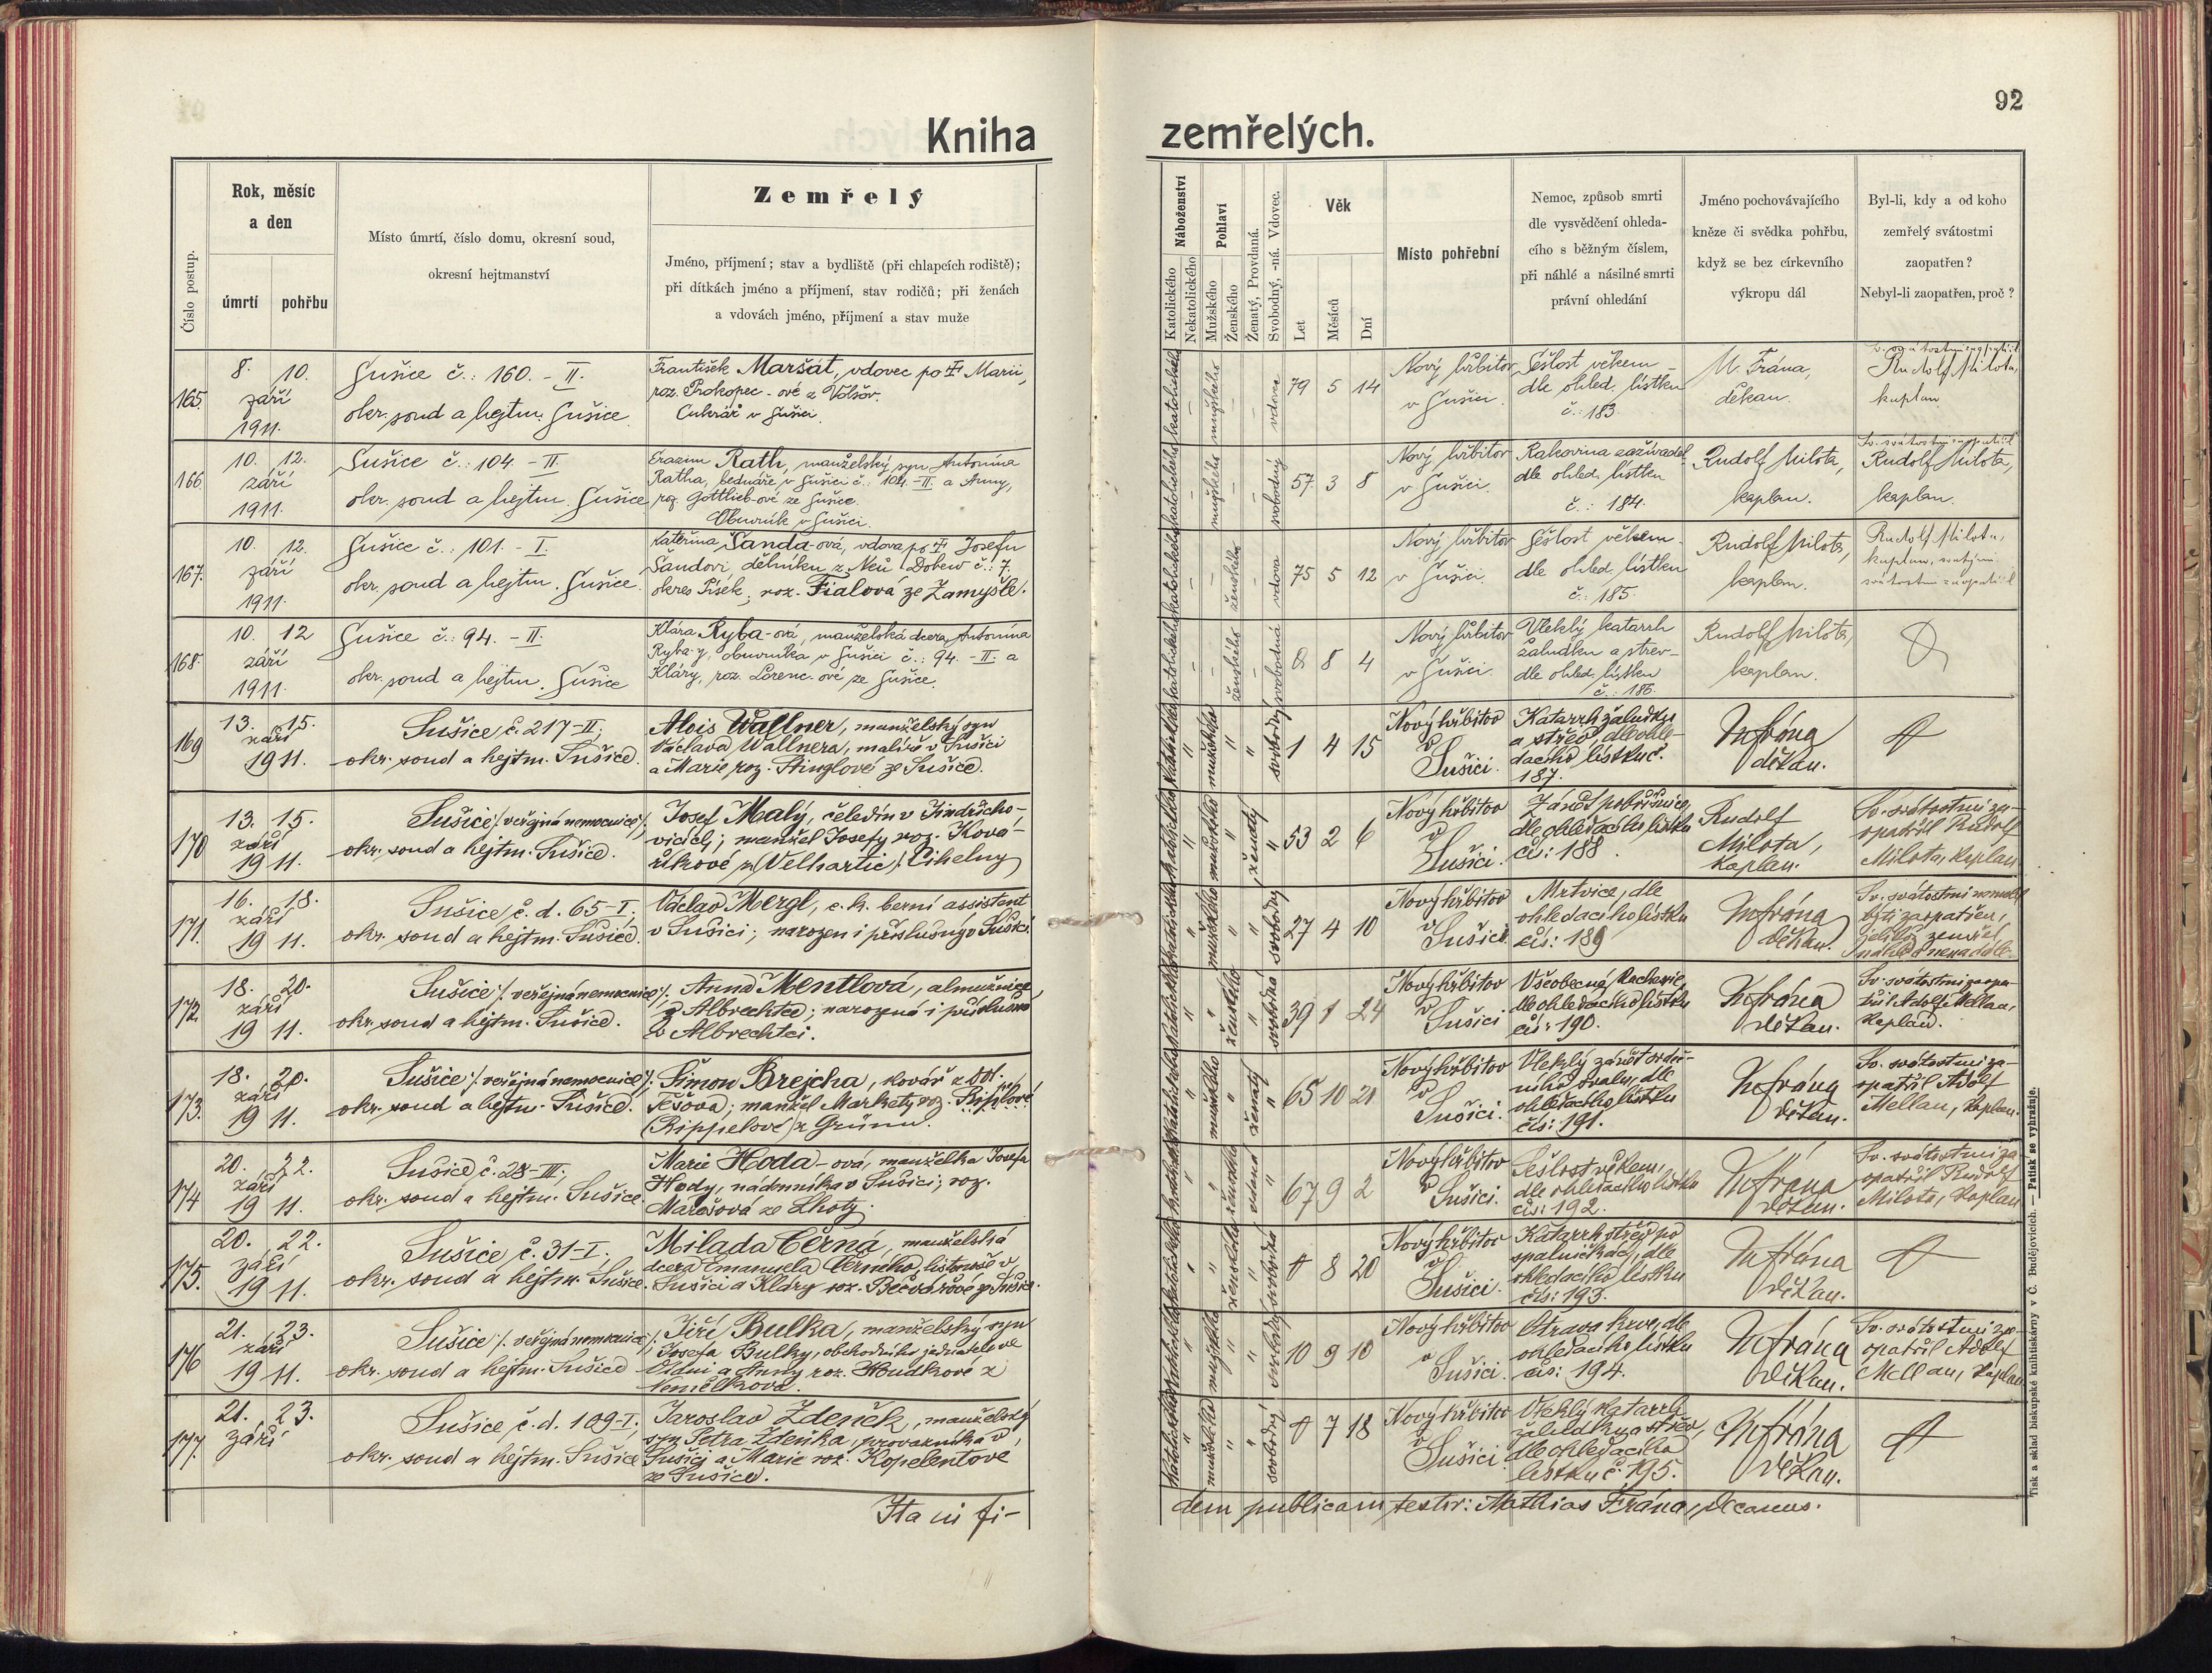 92
Kniha zemřelých.
Číslo postup.
Rok, měsíc
a den
úmrtí
pohřbu
Místo úmrtí, číslo domu, okresní soud,
okresní hejtmanství
Zemřelý
Jméno, příjmení; stav a bydliště (při chlapcích rodiště);
při dítkách jméno a příjmení, stav rodičů; při ženách
a vdovách jméno, příjmení a stav muže
Náboženství
Katolického
Nekatolického
Pohlaví
Mužského
Ženského
Ženatý, Provdaná.
Svobodný, -ná. Vdovec.
Věk
Let
Měsíců
Dní
Místo pohřební
Nemoc, způsob smrti
dle vysvědčení ohleda-
cího s běžným číslem,
při náhlé a násilné smrti
právní ohledání
Jméno pochovávajícího
kněze či svědka pohřbu,
když se bez církevního
výkropu dál
Byl-li, kdy a od koho
zemřelý svátostmi
zaopatřen?
Nebyl-li zaopatřen, proč?
165.
8. 10.
září
1911.
Sušice č.: 160. - II.
okr. soud a hejtm. Sušice
František Maršát, vdovec po † Marii,
roz. Prokopec-ové z Volšov.
Cukrář v Sušici.
katolického
mužského
vdovec
79 5 14
Nový hřbitov
v Sušici.
Sešlost věkem
dle ohled. lístku
č.: 183.
M. Frána,
děkan.
Rudolf Milota,
kaplan
166.
10. 12.
září
1911.
Sušice č.: 104. - II.
okr. soud a hejtm. Sušice
Erazim Rath, manželský syn Antonína
Ratha, bednáře v Sušici č.: 104. - II. a Anny,
roz. Gottlieb-ové ze Sušice.
Obuvník v Sušici.
katolického
mužského
svobodný
57. 3 8
Nový hřbitov
v Sušici.
Rakovina zažívadel
dle ohled. lístku
č.: 184.
Rudolf Milota,
kaplan.
Sv. svátostmi zaopatřil
Rudolf Milota,
kaplan.
167.
10. 12.
září
1911.
Sušice č.: 101. - I.
okr. soud a hejtm. Sušice.
Kateřina Šanda-ová, vdova po † Josefu
Šandovi, dělníku z Neu Dobew č.: 7.
okres Písek, roz. Fialová ze Zamyšle.
katolického
ženského
vdova
75 5 12
Nový hřbitov
v Sušici.
Sešlost věkem
dle ohled. lístku
č.: 185.
Rudolf Milota,
kaplan.
Rudolf Milota,
kaplan, svatými
svátostmi zaopatřil
168.
10. 12
září
1911.
Sušice č.: 94. - II.
okr. soud a hejtm. Sušice
Klára Ryba-ová, manželská dcera Antonína
Ryba-y, obuvníka v Sušici č.: 94. - II. a
Kláry, roz. Lorenc-ové ze Sušice.
katolického
ženského
svobodná
0 8 4
Nový hřbitov
v Sušici.
Vleklý katarrh
žaludku a střev
dle ohled. lístku
č.: 186.
Rudolf Milota,
kaplan.
169
13. 15.
září
1911.
Sušice, č. 217-II;
okr. soud a hejtm. Sušice.
Alois Wallner, manželský syn
Václava Wallnera, malíře v Sušici
a Marie, roz. Stinglové ze Sušice.
mužského
svobodný
1 4 15
Nový hřbitov
v
Sušici.
Katarrh žaludku
a střev, dle ohle-
dacího lístku č.
187.
M. Frána
děkan.
170
13. 15.
září
1911.
Sušice /: veřejná nemocnice :/;
okr. soud a hejtm. Sušice.
Josef Malý, čeledín v Jindřicho-
vicích; manžel Josefy roz. Ková-
říkové z (Velhartic) Cihelny
mužského
ženatý
53 2 6
Nový hřbitov
v
Sušici.
Zánět pobřišnice,
dle ohledacího lístku
čís: 188.
Rudolf
Milota,
kaplan.
Sv. svátostmi za-
opatřil Rudolf
Milota, kaplan
171.
16. 18.
září
1911.
Sušice, č. d. 65-I;
okr. soud a hejtm. Sušice.
Václav Mergl, c. k. berní assistent
v Sušici; narozen i příslušný v Sušici.
mužského
svobodný
27 4 10
Nový hřbitov
v
Sušici.
Mrtvice, dle
ohledacího lístku
čís: 189
M. Frána
děkan.
Sv. svátostmi nemohl
býti zaopatřen,
jelikož zemřel
náhle a nenadále.
172
18. 20.
září
1911.
Sušice /: veřejná nemocnice :/;
okr. soud a hejtm. Sušice.
Anna Mentlová, almužnice
z Albrechtce; narozená i příslušná
v Albrechtci.
ženského
svobodná
39 1 24
Nový hřbitov
v
Sušici
Všeobecná kachexie,
dle ohledacího lístku
čís: 190.
M. Frána
děkan.
Sv. svátostmi zaopa-
třil Adolf Mellan,
kaplan.
173.
18. 20.
září
1911.
Sušice /: veřejná nemocnice :/;
okr. soud a hejtm. Sušice.
Šimon Brejcha, kovář z Dol.
Těšova; manžel Markety roz. Riplové
(Rippelové) z Grünu.
mužského
ženatý
65 10 21
Nový hřbitov
v
Sušici.
Vleklý zánět srdeč-
ního svalu, dle
ohledacího lístku
čís: 191.
M. Frána
děkan.
Sv. svátostmi za-
opatřil Adolf
Mellan, kaplan.
174
20. 22.
září
1911.
Sušice č. 28-III;
okr. soud a hejtm. Sušice
Marie Hoda-ová, manželka Josefa
Hody, nádenníka v Sušici; roz.
Marešová ze Lhoty.
ženského
67 9 2
Nový hřbitov
v
Sušici.
Sešlost věkem,
dle ohledacího lístku
čís: 192.
M. Frána
děkan.
Sv. svátostmi za-
opatřil Rudolf
Milota, kaplan
175.
20. 22.
září
1911.
Sušice, č. 31-I.
okr. soud a hejtm. Sušice.
Milada Černá, manželská
dcera Emanuela Černého, listonoše v
Sušici a Kláry roz. Bečvářové ze Sušice.
ženského
svobodná
0 8 20
Nový hřbitov
v
Sušici.
Katarrh střev po
spalničkách, dle
ohledacího lístku
čís: 193.
M. Frána
děkan.
176
21. 23.
září
1911.
Sušice /: veřejná nemocnice :/;
okr. soud a hejtm. Sušice
Jiří Bulka, manželský syn
Josefa Bulky, obchodního jednatele ve
Vídni a Anny roz. Houdkové z
Nemělkova.
mužského
svobodný
10 9 10
Nový hřbitov
v
Sušici.
Otrava krve, dle
ohledacího lístku
čís: 194.
M. Frána
děkan.
Sv. svátostmi za-
opatřil Adolf
Mellan, kaplan
177.
21. 23.
září
Sušice č. d. 109-I;
okr. soud a hejtm. Sušice
Jaroslav Zdeněk, manželský
syn Petra Zdeňka, provazníka v
Sušici a Marie roz. Kopelentové
ze Sušice.
mužského
svobodný
0 7 18
Nový hřbitov
v
Sušici.
Vleklý katarrh
žaludku a střev,
dle ohledacího
lístku č. 195.
M. Frána
děkan.
Ita in fi-
dem publicam testor: Mathias Frána, decanus.
Tisk a sklad biskupské knihtiskárny v Č. Budějovicích. — Patisk se vyhražuje.